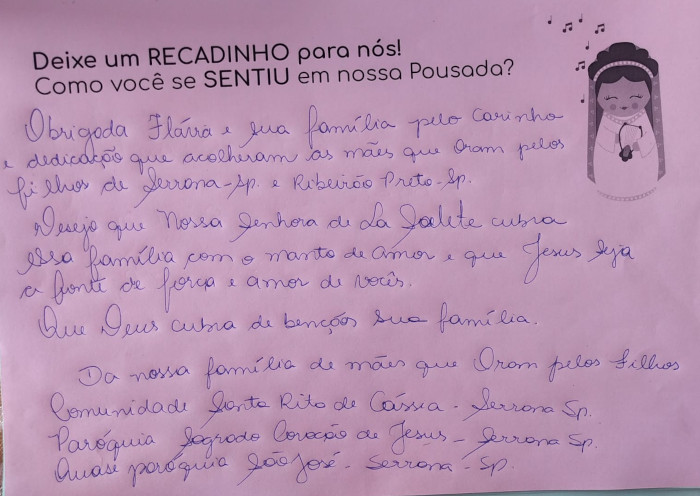 Deixe um RECADINHO para nós!
Como você se SENTIU em nossa Pousada?
Obrigada Flávia e sua família pelo carinho
e dedicação que acolheram as mães que Oram pelos
filhos de Serrana-Sp. e Ribeirão Preto-Sp.
Desejo que Nossa Senhora de La Salete cubra
essa família com o manto de amor e que Jesus seja
a fonte de força e amor de vocês.
Que Deus cubra de bençãos sua família.
Da nossa família de mães que Oram pelos Filhos
Comunidade Santa Rita de Cássia - Serrana Sp.
Paróquia Sagrado Coração de Jesus - Serrana Sp.
Quase paróquia São José - Serrana - Sp.